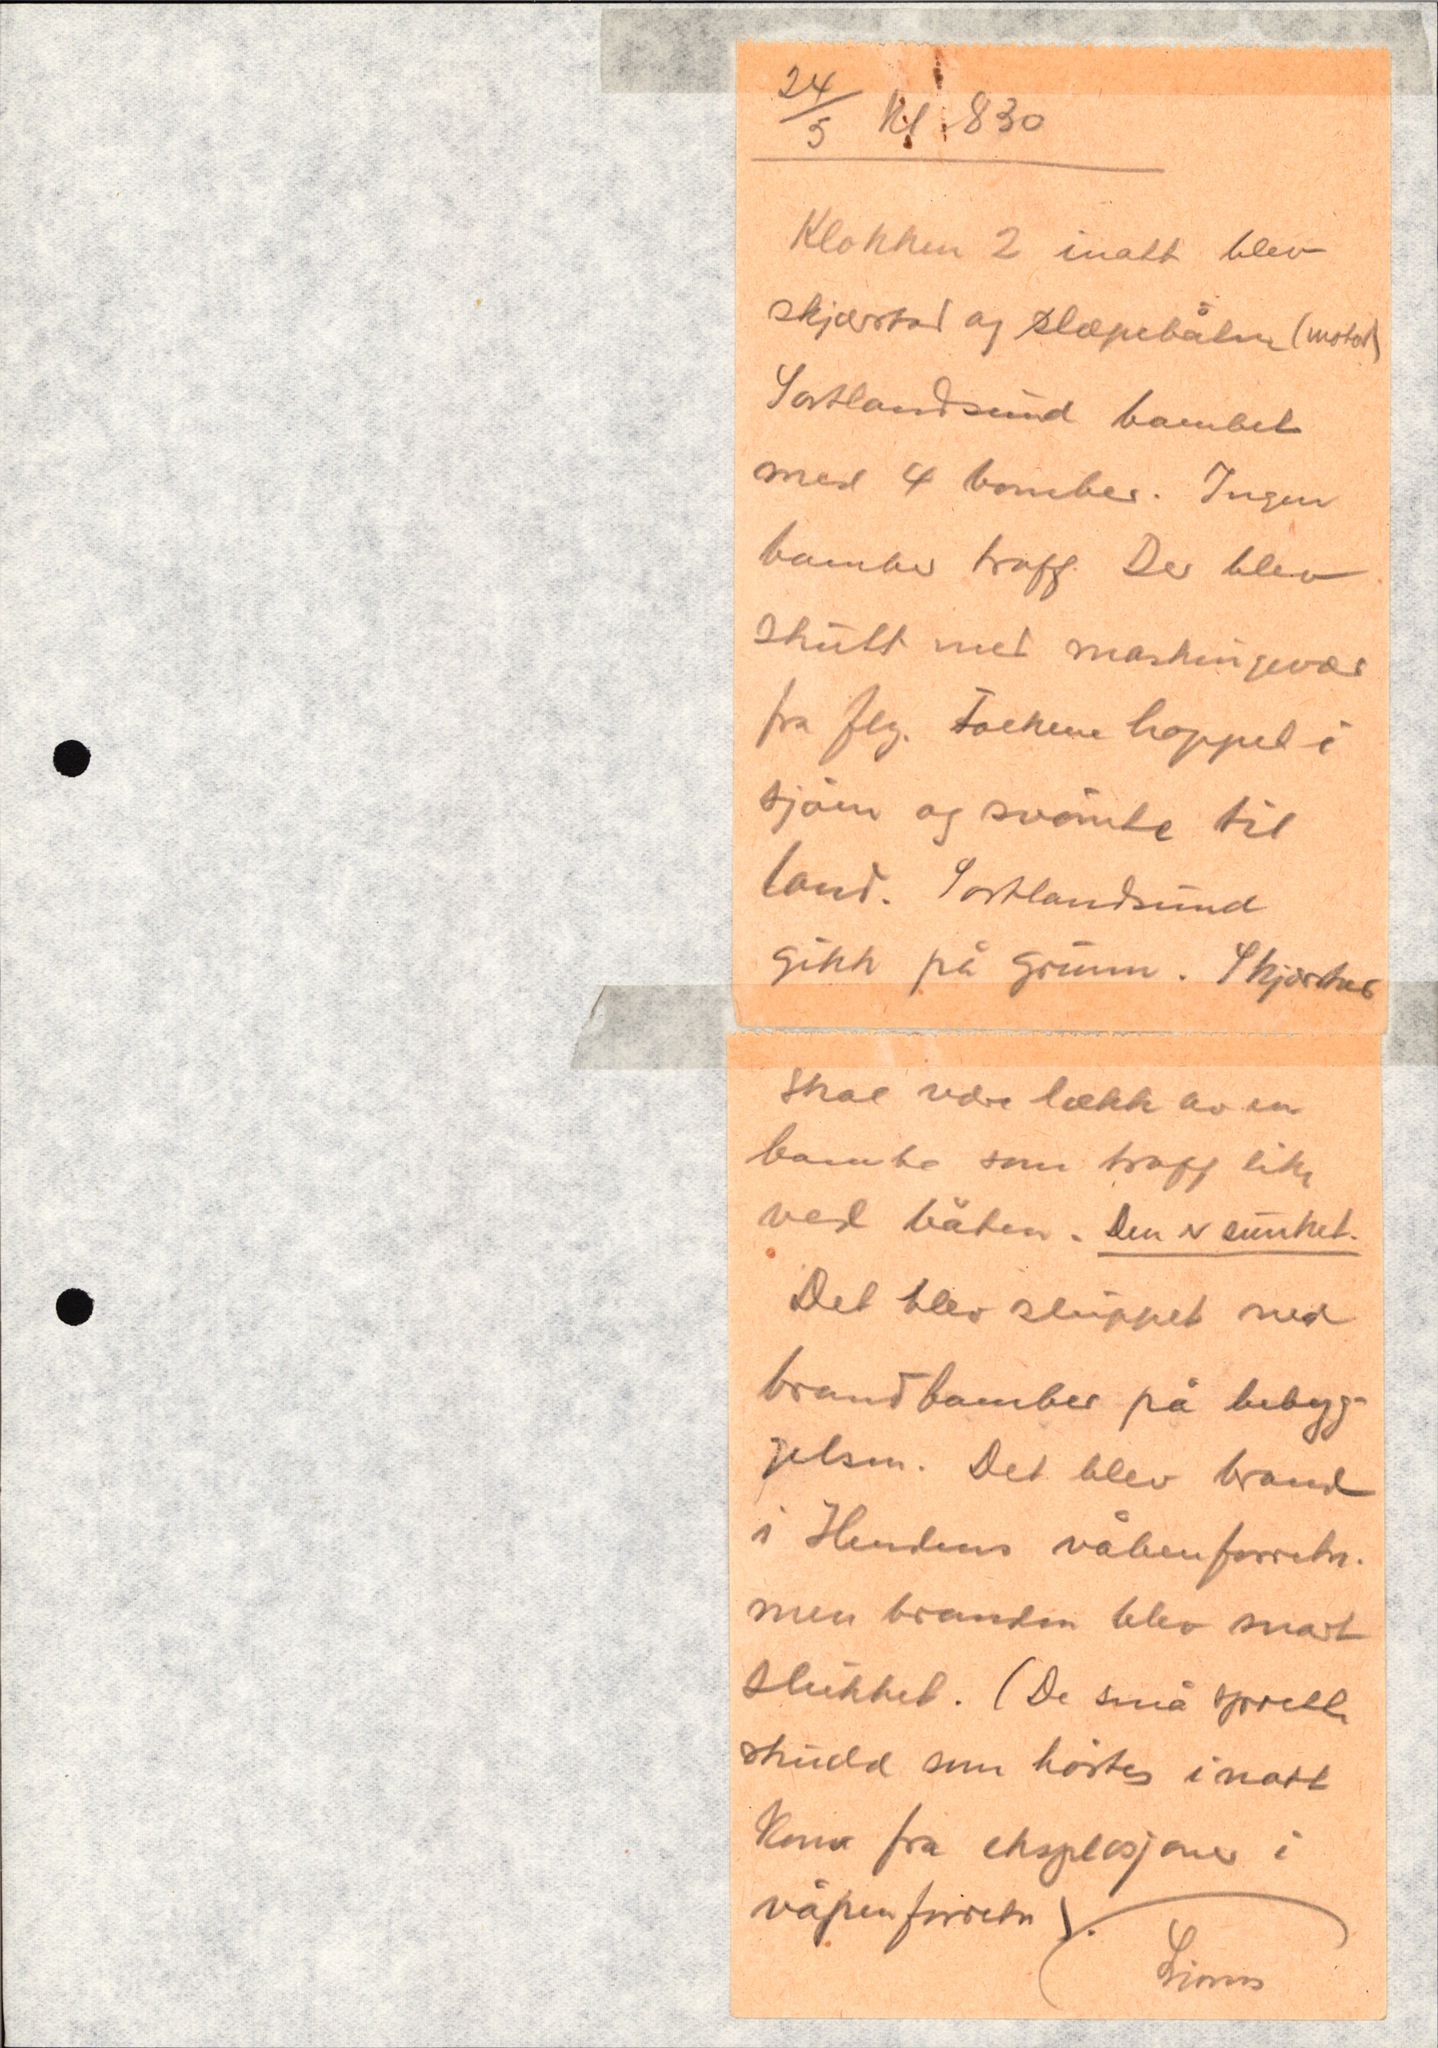 24/5 Kl. 830
Klokken 2 inatt blev
skjærstad og slæpebåten (motor)
Sortlandsund bombet
med 4 bomber. Ingen
bomber traff. Der blev
skutt med maskingevær
fra fly. Folkene hoppet i
sjøen og svømte til
land. Sortlandsund
gikk på grunn. Skjærstad
skal være lækk av en
bombe som traff like
ved båten. Den er sunket.
Det blev sluppet ned
brandbomber på bebyg-
gelsen. Det blev brand
i våbenforretn.
men branden blev snart
slukket. (De små
skudd som hørtes inatt
kom fra eksplosjoner i
våpenforretn).